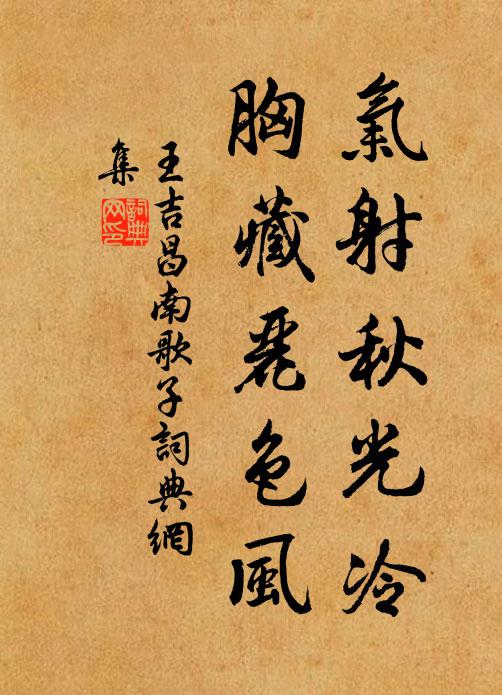 氣射秋光冷
胸藏麗色風
王吉昌南歌子詞典網
集
詞典網印